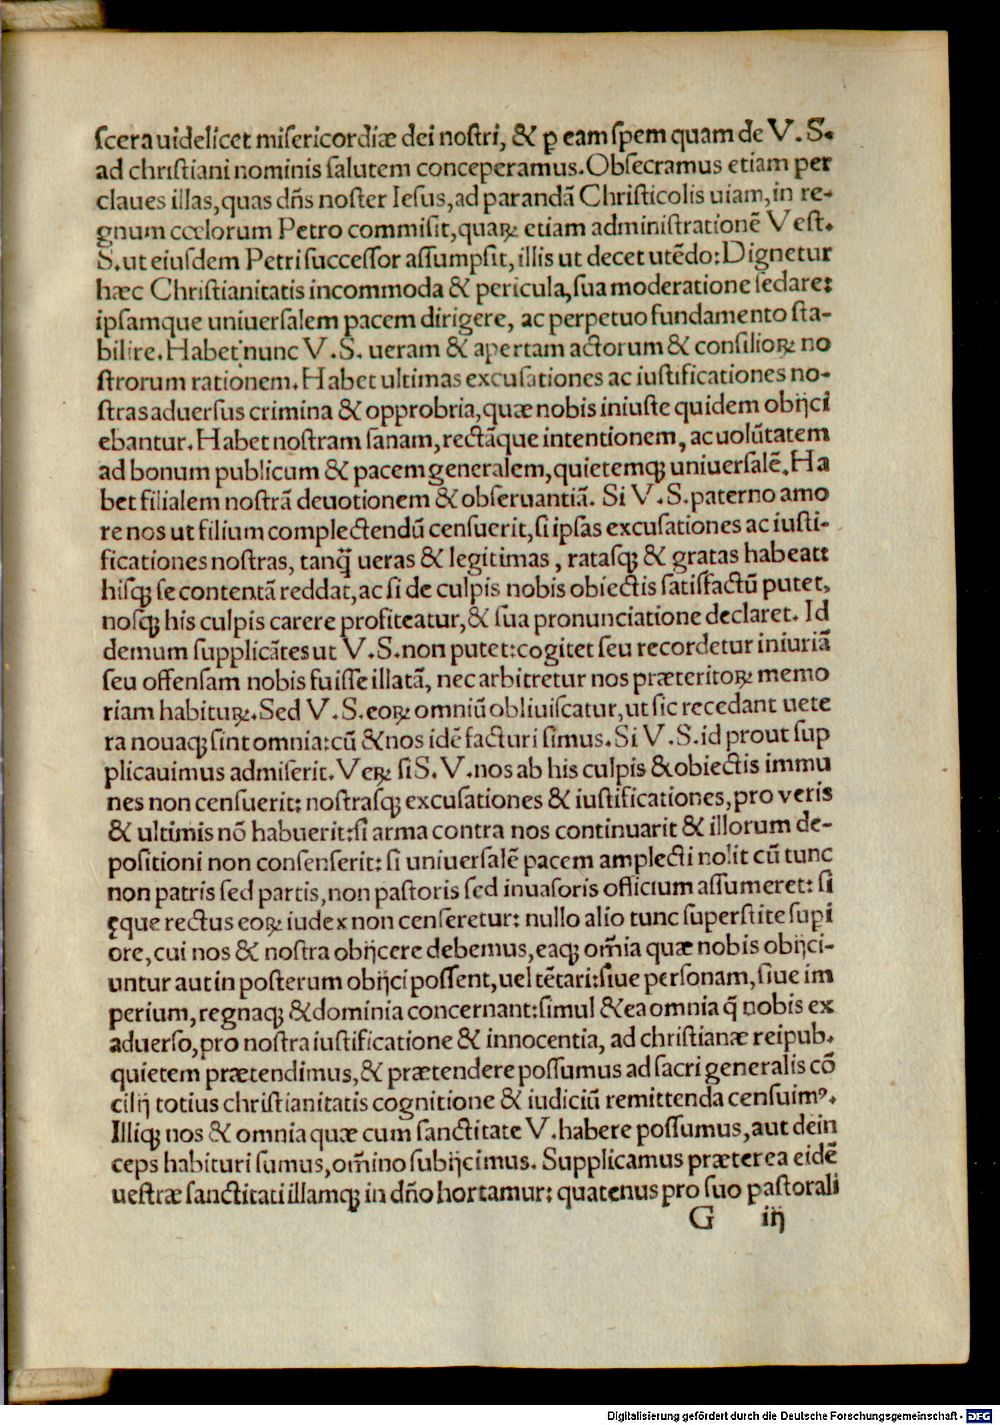 scera uidelicet misericordiæ dei nostri, & ꝑ eam spem quam de V. S.
ad christiani nominis salutem conceperamus. Obsecramus etiam per
claues illas, quas dn̄s noster Iesus, ad parandā Christicolis uiam, in re-
gnum cœlorum Petro commisit, quaꝝ etiam administrationē Vest.
S. ut eiusdem Petri successor assumpsit, illis ut decet utēdo: Dignetur
hæc Christianitatis incommoda & pericula, sua moderatione sedare:
ipsamque uniuersalem pacem dirigere, ac perpetuo fundamento sta-
bilire. Habet nunc V. S. ueram & apertam actorum & consilioꝝ no
strorum rationem. Habet ultimas excusationes ac iustificationes no-
stras aduersus crimina & opprobria, quæ nobis iniuste quidem obijci
ebantur. Habet nostram sanam, rectāque intentionem, ac uolūtatem
ad bonum publicum & pacem generalem, quietemqꝫ uniuersalē. Ha
bet filialem nostrā deuotionem & obseruantiā. Si V. S. paterno amo
re nos ut filium complectendū censuerit, si ipsas excusationes ac iusti-
ficationes nostras, tanq̄ ueras & legitimas, ratasqꝫ & gratas habeat:
hisqꝫ se contentā reddat, ac si de culpis nobis obiectis satisfactū putet,
nosqꝫ his culpis carere profiteatur, & sua pronunciatione declaret. Id
demum supplicātes ut V. S. non putet: cogitet seu recordetur iniuriā
seu offensam nobis fuisse illatā, nec arbitretur nos præteritoꝝ memo
riam habituꝝ. Sed V. S. eoꝝ omniū obliuiscatur, ut sic recedant uete
ra nouaqꝫ sint omnia: cū & nos idē facturi simus. Si V. S. id prout sup
plicauimus admiserit. Veꝝ si S. V. nos ab his culpis & obiectis immu
nes non censuerit: nostrasqꝫ excusationes & iustificationes, pro veris
& ultimis nō habuerit: si arma contra nos continuarit & illorum de-
positioni non consenserit: si uniuersalē pacem amplecti nolit cū tunc
non patris sed partis, non pastoris sed inuasoris officium assumeret: si
ęque rectus eoꝝ iudex non censeretur: nullo alio tunc superstite supi
ore, cui nos & nostra obijcere debemus, eaqꝫ om̄ia quæ nobis obijci-
untur aut in posterum obijci possent, uel tētari: siue personam, siue im
perium, regnaqꝫ & dominia concernant: simul & ea omnia q̄ nobis ex
aduerso, pro nostra iustificatione & innocentia, ad christianæ reipub.
quietem prætendimus, & prætendere possumus ad sacri generalis cō
cilij totius christianitatis cognitione & iudiciū remittenda censuimꝰ.
Illiqꝫ nos & omnia quæ cum sanctitate V. habere possumus, aut dein
ceps habituri sumus, om̄ino subijcimus. Supplicamus præterea eidē
uestræ sanctitati illamqꝫ in dn̄o hortamur: quatenus pro suo pastorali
G iij
Digitalisierung gefördert durch die Deutsche Forschungsgemeinschaft - DFG